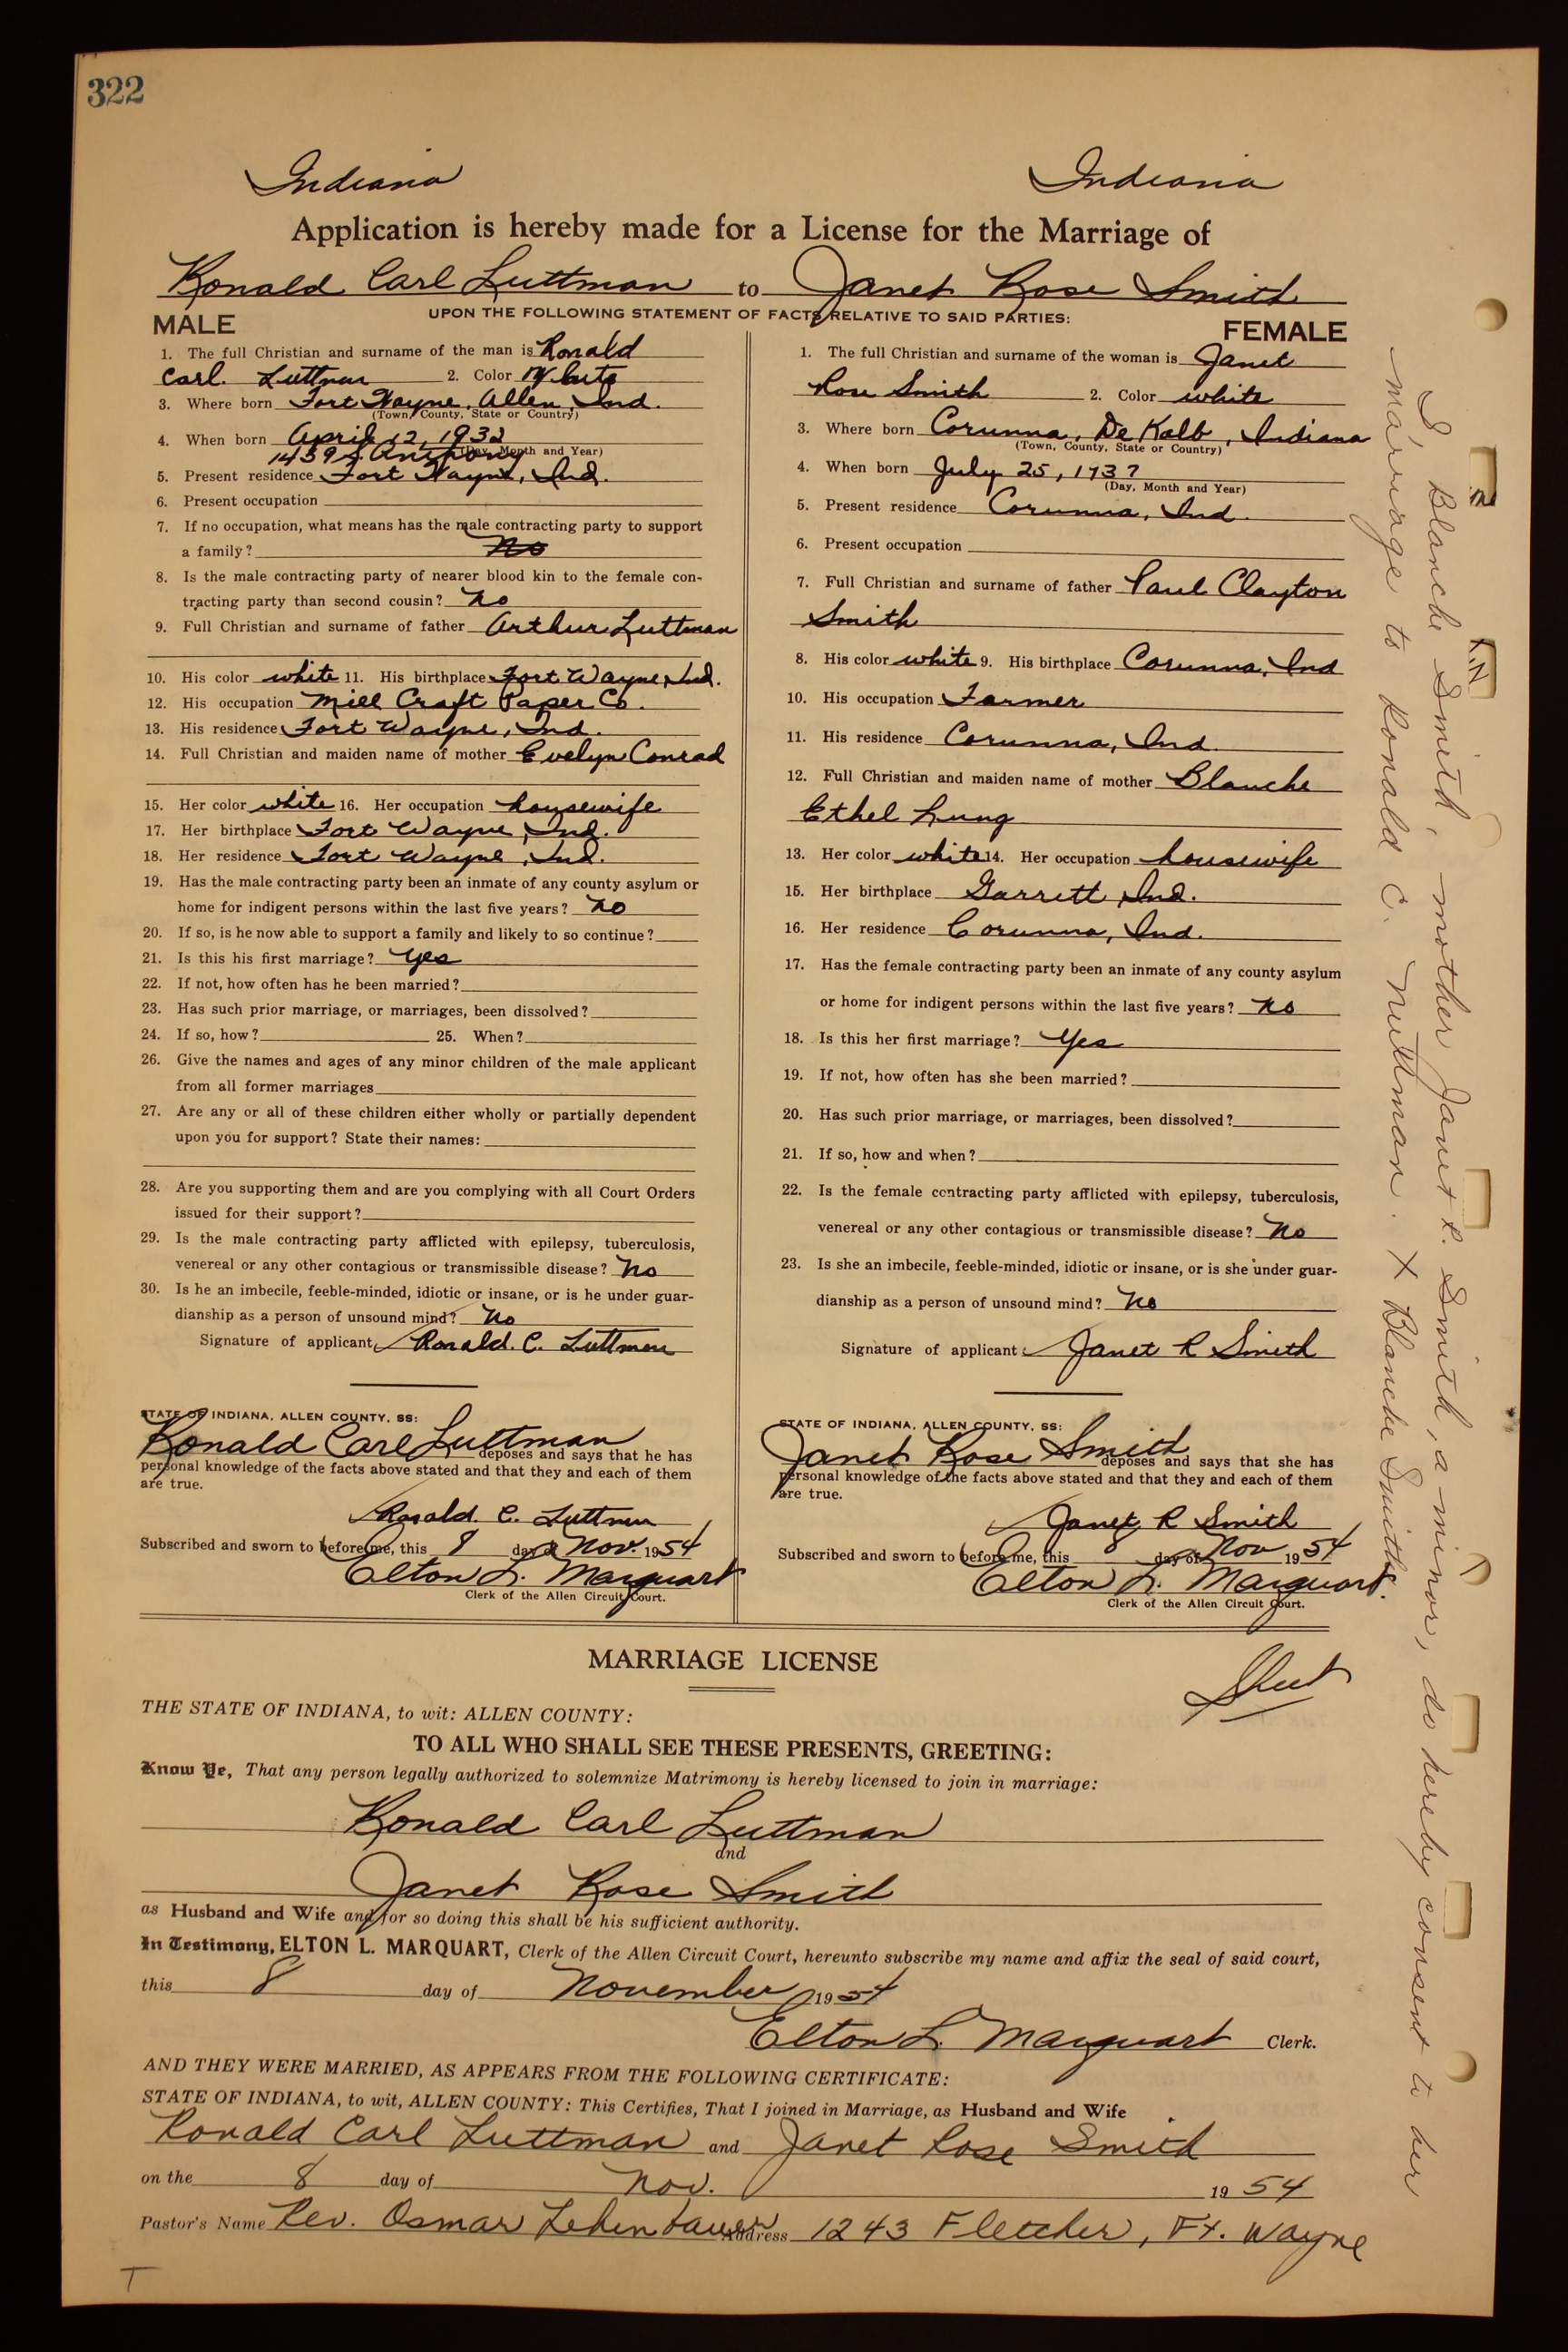 322
Indiana Indiana
Application is hereby made for a License for the Marriage of
Ronald Carl Luttman to Janet Rose Smith
UPON THE FOLLOWING STATEMENT OF FACTS RELATIVE TO SAID PARTIES:
MALE
1. The full Christian and surname of the man is Ronald
Carl. Luttman 2. Color White
3. Where born Fort Wayne, Allen, Ind.
(Town, County, State or Country)
4. When born April 12, 1932
(Day, Month and Year)
1439 S. Anthony
5. Present residence Fort Wayne, Ind.
6. Present occupation
7. If no occupation, what means has the male contracting party to support
a family? no
8. Is the male contracting party of nearer blood kin to the female con-
tracting party than second cousin? no
9. Full Christian and surname of father Arthur Luttman
10. His color white 11. His birthplace Fort Wayne, Ind.
12. His occupation Mill Craft Paper Co.
13. His residence Fort Wayne, Ind.
14. Full Christian and maiden name of mother Evelyn Conrad
15. Her color white 16. Her occupation housewife
17. Her birthplace Fort Wayne, Ind.
18. Her residence Fort Wayne, Ind.
19. Has the male contracting party been an inmate of any county asylum or
home for indigent persons within the last five years? no
20. If so, is he now able to support a family and likely to so continue?
21. Is this his first marriage? yes
22. If not, how often has he been married?
23. Has such prior marriage, or marriages, been dissolved?
24. If so, how? 25. When?
26. Give the names and ages of any minor children of the male applicant
from all former marriages
27. Are any or all of these children either wholly or partially dependent
upon you for support? State their names:
28. Are you supporting them and are you complying with all Court Orders
issued for their support?
29. Is the male contracting party afflicted with epilepsy, tuberculosis,
venereal or any other contagious or transmissible disease? no
30. Is he an imbecile, feeble-minded, idiotic or insane, or is he under guar-
dianship as a person of unsound mind? no
Signature of applicant Ronald. C. Luttman
STATE OF INDIANA, ALLEN COUNTY, SS:
Ronald Carl Luttman deposes and says that he has
personal knowledge of the facts above stated and that they and each of them
are true.
Ronald. C. Luttman
Subscribed and sworn to before me, this 8 day of Nov. 1954
Elton L. Marquart
Clerk of the Allen Circuit Court.
FEMALE
1. The full Christian and surname of the woman is Janet
Rose Smith 2. Color white
3. Where born Corunna, De Kalb, Indiana
(Town, County, State or Country)
4. When born July 25, 1937
(Day, Month and Year)
5. Present residence Corunna, Ind.
6. Present occupation
7. Full Christian and surname of father Paul Clayton
Smith
8. His color white 9. His birthplace Corunna, Ind
10. His occupation Farmer
11. His residence Corunna, Ind.
12. Full Christian and maiden name of mother Blanche
Ethel Lung
13. Her color white 14. Her occupation housewife
15. Her birthplace Garrett, Ind.
16. Her residence Corunna, Ind.
17. Has the female contracting party been an inmate of any county asylum
or home for indigent persons within the last five years? no
18. Is this her first marriage? Yes
19. If not, how often has she been married?
20. Has such prior marriage, or marriages, been dissolved?
21. If so, how and when?
22. Is the female contracting party afflicted with epilepsy, tuberculosis,
venereal or any other contagious or transmissible disease? No
23. Is she an imbecile, feeble-minded, idiotic or insane, or is she under guar-
dianship as a person of unsound mind? No
Signature of applicant: Janet R Smith
STATE OF INDIANA, ALLEN COUNTY, SS:
Janet Rose Smith deposes and says that she has
personal knowledge of the facts above stated and that they and each of them
are true.
Janet R Smith
Subscribed and sworn to before me, this 8 day of Nov 1954
Elton L. Marquart.
Clerk of the Allen Circuit Court.
I Blanche Smith, mother Janet R. Smith, a minor, do hereby consent to her
marriage to Ronald C. Nuttman. X Blanche Smith
MARRIAGE LICENSE
THE STATE OF INDIANA, to wit: ALLEN COUNTY:
TO ALL WHO SHALL SEE THESE PRESENTS, GREETING:
Know Ye, That any person legally authorized to solemnize Matrimony is hereby licensed to join in marriage:
Ronald Carl Luttman
and
Janet Rose Smith
as Husband and Wife and for so doing this shall be his sufficient authority.
In Testimony, ELTON L. MARQUART, Clerk of the Allen Circuit Court, hereunto subscribe my name and affix the seal of said court,
this 8 day of November 1954
Elton L. Marquart Clerk.
AND THEY WERE MARRIED, AS APPEARS FROM THE FOLLOWING CERTIFICATE:
STATE OF INDIANA, to wit, ALLEN COUNTY: This Certifies, That I joined in Marriage, as Husband and Wife
Ronald Carl Luttman and Janet Rose Smith
on the 8 day of Nov. 1954
Pastor's Name Rev. Osmar Lehenbauer Address 1243 Fletcher, Ft. Wayne
T